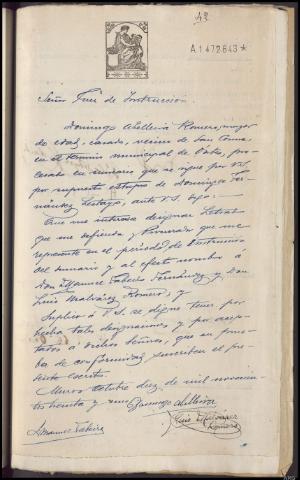 43
A1472643*
Señor Juez de Instrucción
Domingo Abelleira Romero, mayor
de edad, casado, vecino de San Cosme
en el término municipal de Outes, pro-
cesado en sumario que se sigue por V.S.
por supuesto estupro de Dominga Fer-
nández Lestayo, ante V.S. digo:
Que me interesa designar Letrado
que me defienda y Procurador que me
represente en el periodo de Instrucción
del sumario y al efecto nombro á
Don Manuel Tabeira Fernández y Don
Luis Malvárez Romero, y
Suplico á V.S. se digne tener por
hecha tales designaciones y por acep-
tadas á dichos Señores, que en prue-
ba de conformidad suscriben el pre-
sente escrito.
Muros Octubre diez de mil novecien-
tos treinta y uno
Domingo Abelleira
Manuel Tabeira
Luis Malvarez
Romero